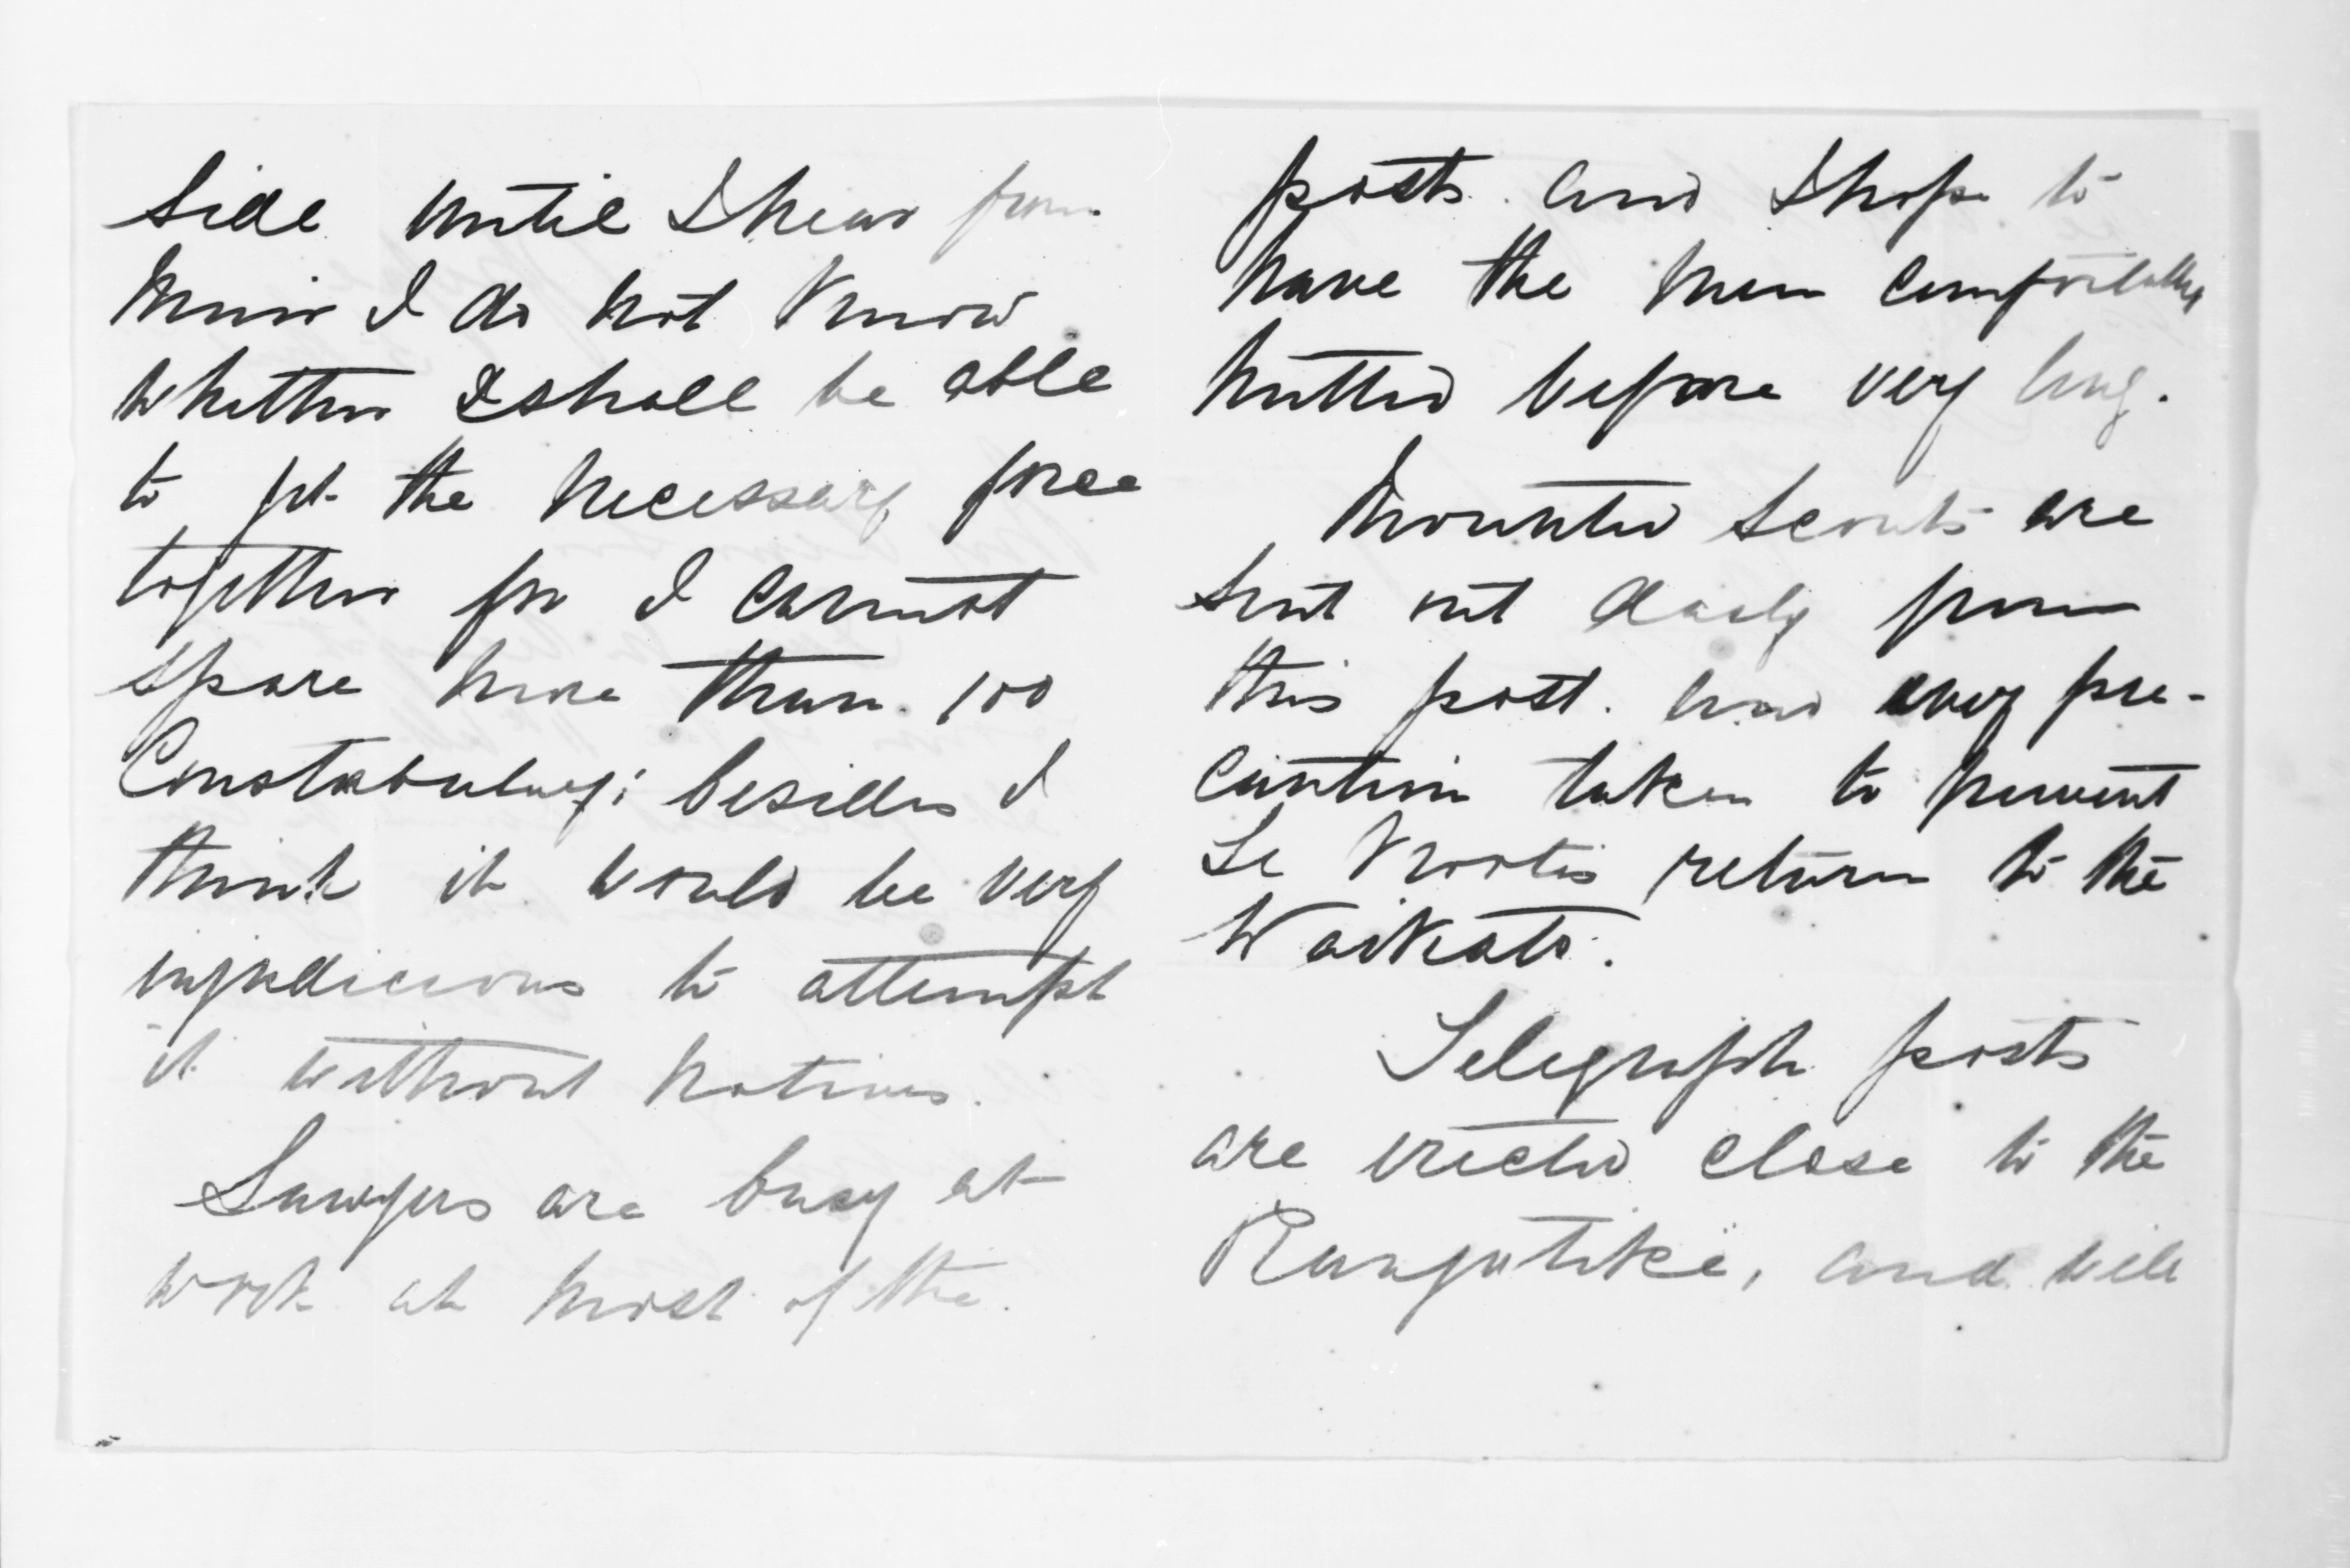 side until I hear from
Muir I do not know
whether I shall be able
to get the necessary force
together for I cannot
spare more than 100
Constabulary; besides I
think it would be very
injudicious to attempt
it without natives.
Sawyers are busy at
work at most of the
posts. and I hope to
have the men comfortably
hutted before very long.
Mounted Scouts are
sent out daily from
this post. and every pre-
caution taken to prevent
Te Kootis return to the
Waikato.
Telegraph posts
are erected close to the
Rangitiki, and will